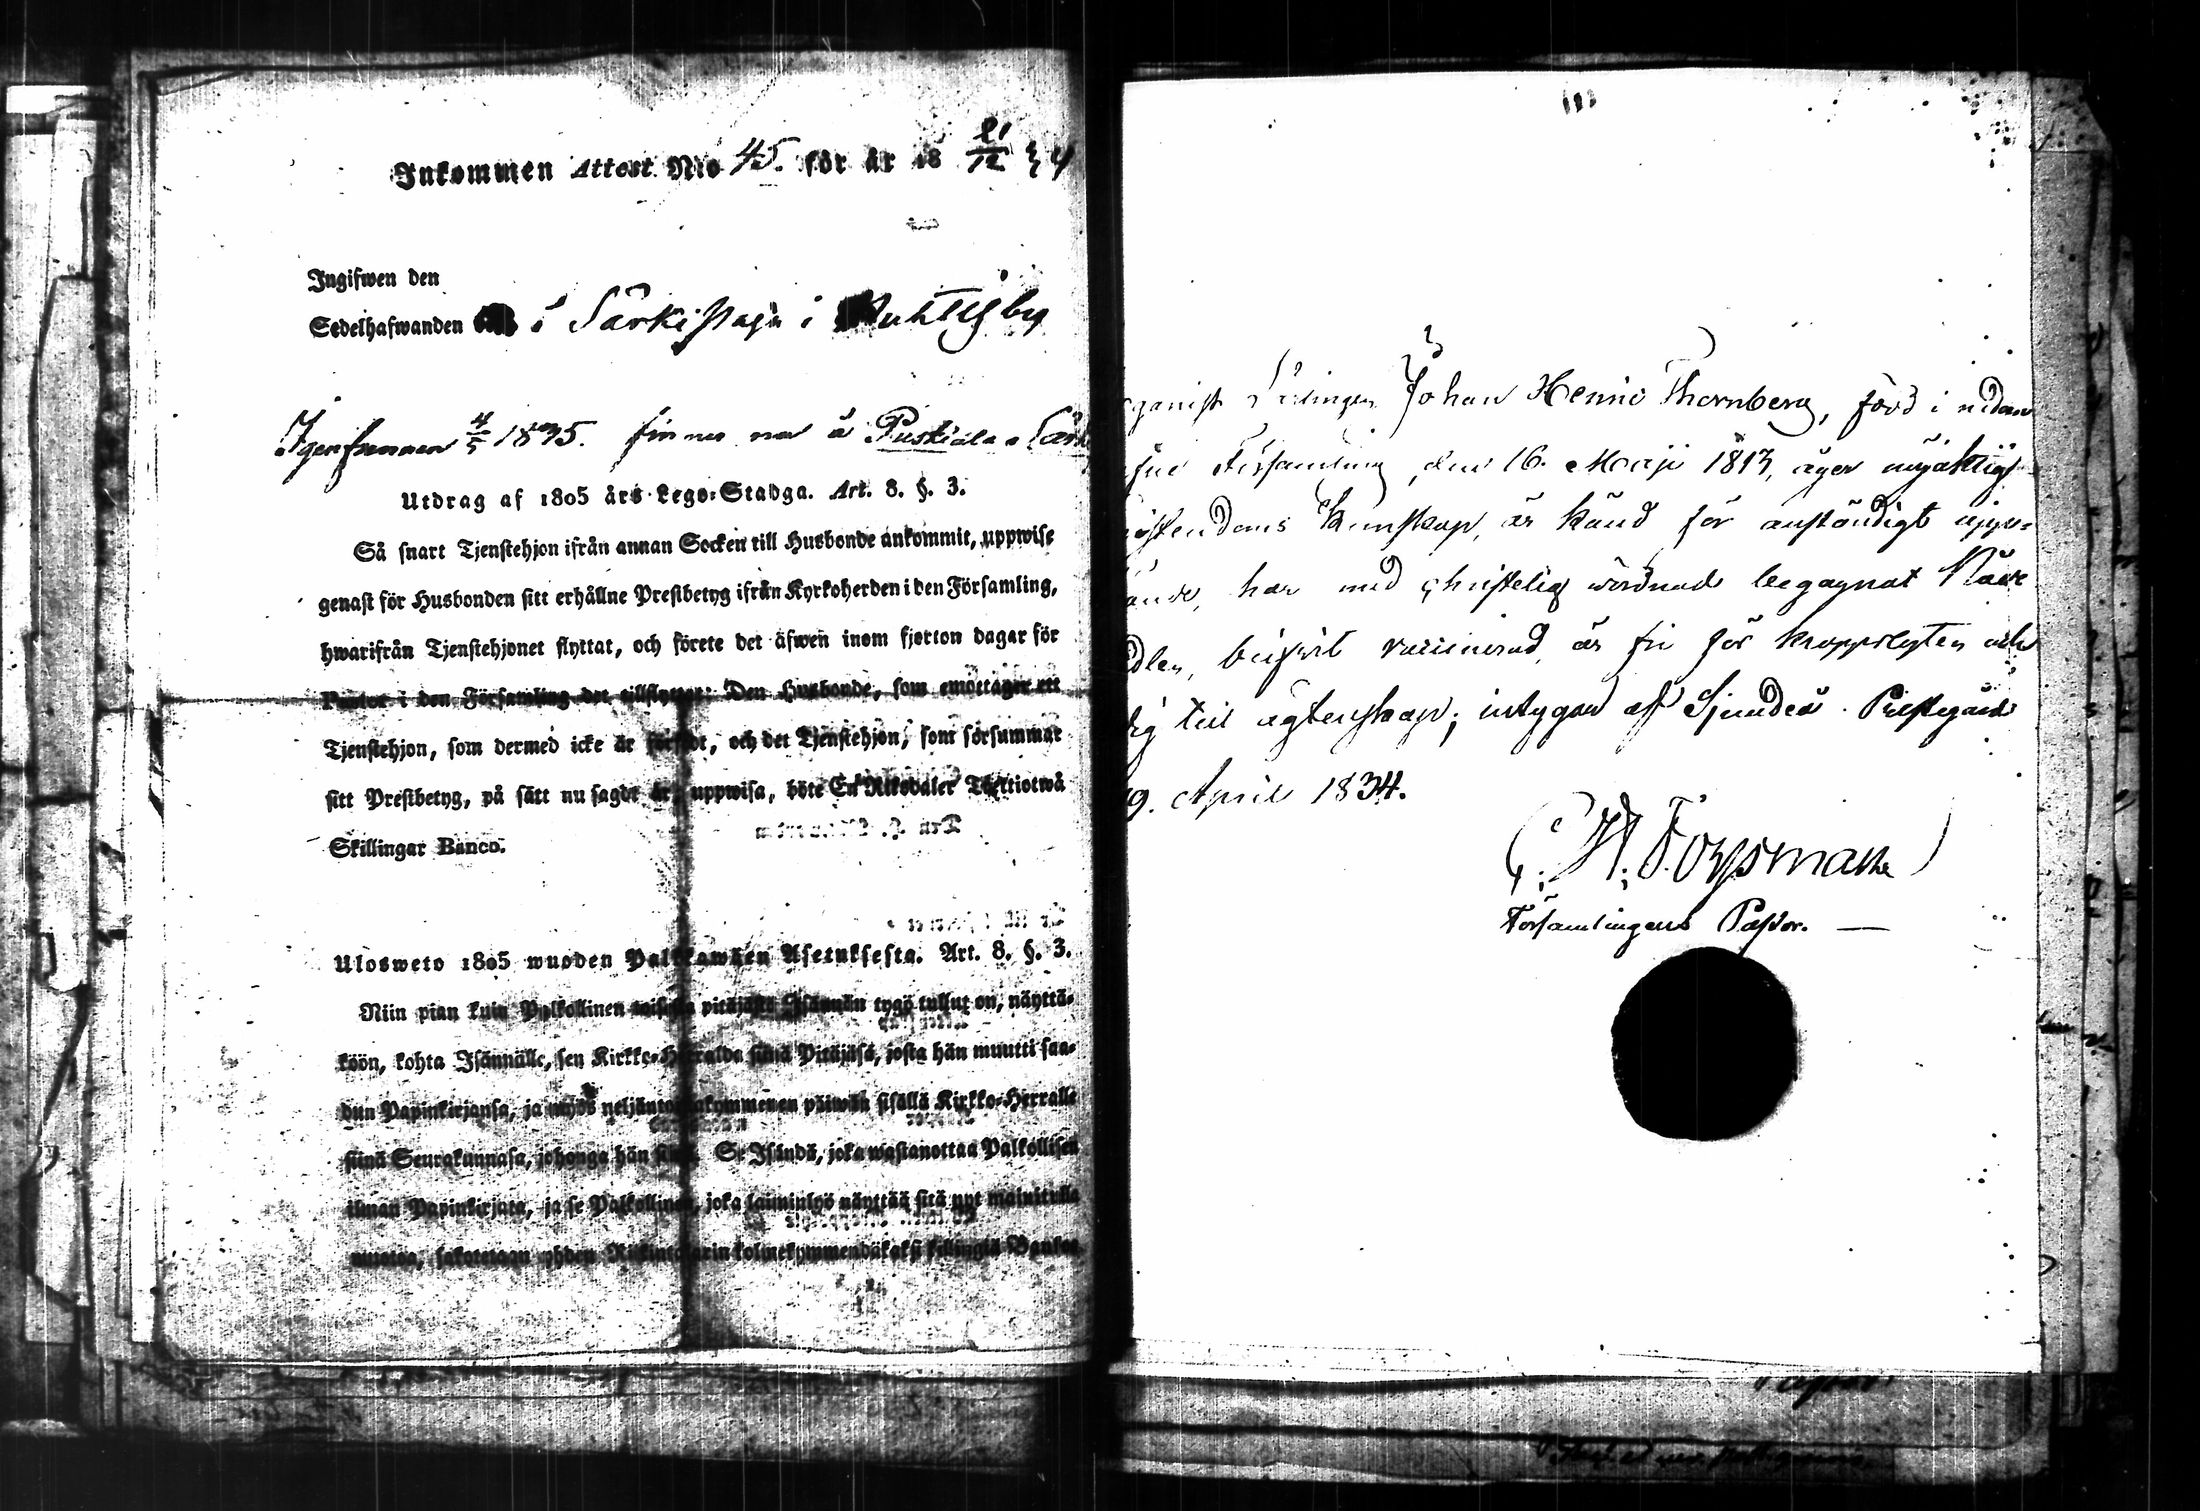 Inkommen Attest No 45. för år 18 21/12 34
Ingifwen den
Sedelhafwanden i Särkistaja i
Igenfunnen 4/5 1835. finnes nu å Pustiala
Utdrag af 1805 års Lego-Stadga. Art. 8. §. 3.
Så snart Tjenstehjon ifrån annan Socken till Husbonde ankommit, uppwise
genast för Husbonden sitt erhållne Prestbetyg ifrån Kyrkoherden i den Församling,
hwarifrån Tjenstehjonet flyttat, och förete det äfwen inom fjorton dagar för
Pastor i den Församling det tillflyttat: Den Husbonde, som emottager ett
Tjenstehjon, som dermed icke är försedt, och det Tjenstehjon, som försummar
sitt Prestbetyg, på sätt nu sagdt är, uppwisa, böte En Riksdaler Trettiotwå
Skillingar Banco.
Ulosweto 1805 wuoden Palkkawäen Asetuksesta. Art. 8. §. 3.
Niin pian kuin Palkollinen toisesta pitäjästä Isännän tygö tullut on, näyttä-
köön, kohta Isännälle, sen Kirkko-Herralda siinä Pitäjäsä, josta hän muutti saa-
dun Papinkirjansa, ja myös neljäntoistakymmenen päiwän sisällä Kirkko-Herralle
siinä Seurakunnasa, johonga hän siirsi. Se Isändä, joka wastanottaa Palkollisen
ilman Papinkirjata, ja se Palkollinen, joka laiminlyö näyttää sitä nyt mainitulla
muotoa, sakotetaan yhden Riikintalarin kolmekymmendäkaksi killingiä Bankos.
ganist Lärlingen Johan Henric Thornberg, född i nedan
Församling, den 16. Maji 1813, äger
stendoms kunskap, är känd för anständigt uppe-
ande, har med christelig wördnad begagnat Natt
dlen, vaccinerad, är fri för kroppslyten och
dig till ägtenskap; intygar af Sjundeå Prestegård
9. April 1834.
C. H. Forsman
Församlingens Pastor.